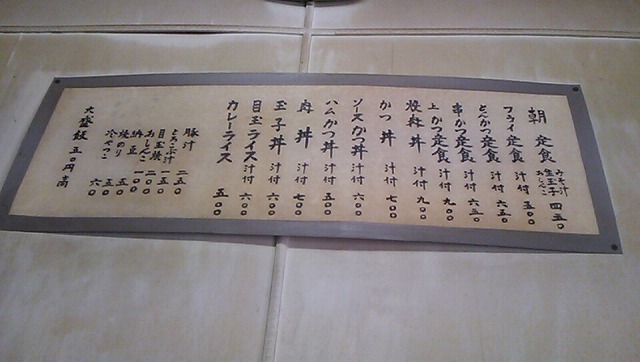 朝定食 みそ汁 生玉子 おしんこ 四五〇
フライ定食 汁付 五〇〇
とんかつ定食 汁付 六五〇
串かつ定食 汁付 六五〇
上かつ定食 汁付 九〇〇
焼肉丼 汁付 九〇〇
かつ丼 汁付 七〇〇
ソースかつ丼 汁付 六〇〇
ハムかつ丼 汁付 五〇〇
肉丼 汁付 七〇〇
玉子丼 汁付 六〇〇
目玉ライス 汁付 六〇〇
カレーライス 五〇〇
豚汁 二五〇
とろろ汁 一五〇
目玉焼 二〇〇
おしんこ 一〇〇
納豆 五〇
焼のり 五〇
冷やっこ 六〇
大盛飯 五〇円高